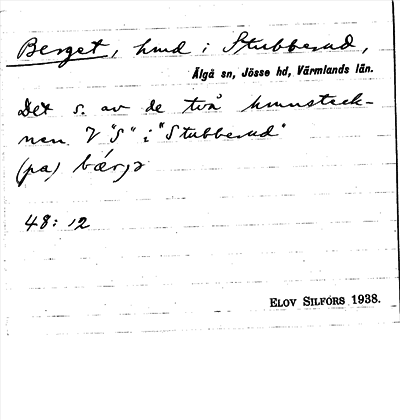 Berget, hmd i Stubberud,
Älgå sn, Jösse hd, Värmlands län.
Det s. av de två hmnsteck-
nen V "S" i "Stubberud"
(pa) bærjə
48: 12
ELOV SILFORS 1938.